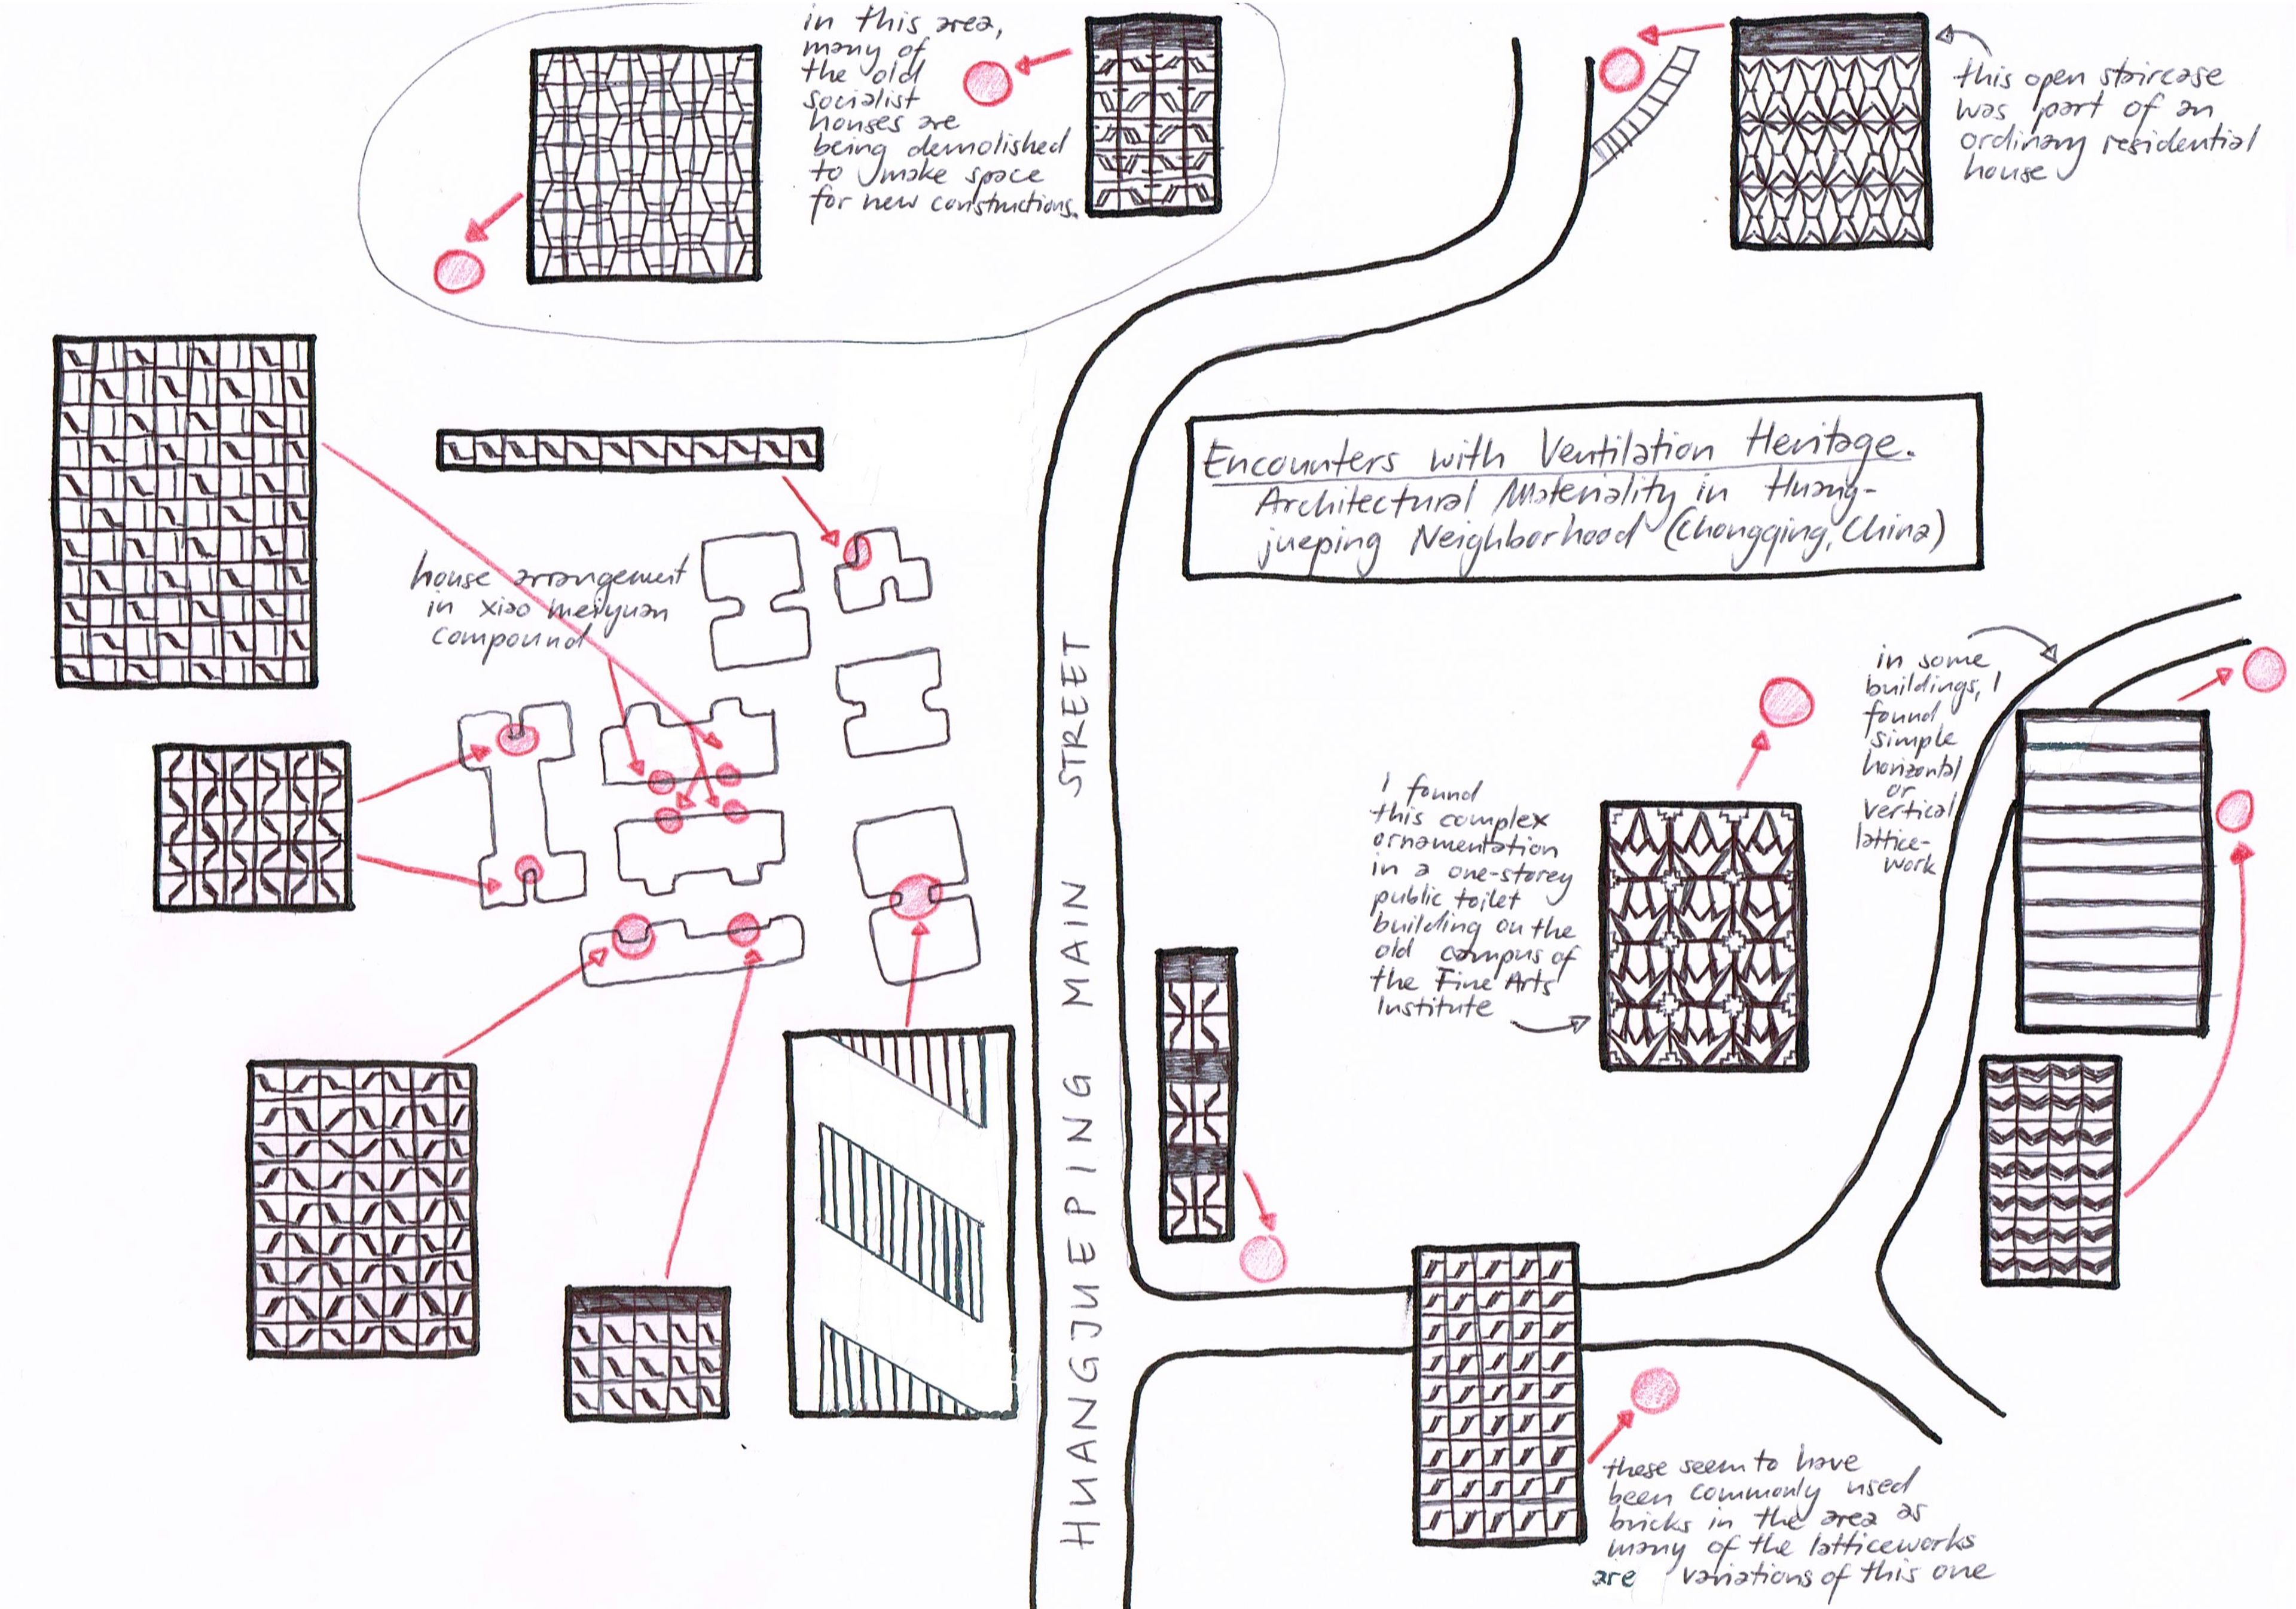 in this area,
many of
the old
socialist
houses are
being demolished
to make space
for new constructions.
this open staircase
was part of an
ordinary residential
house
Encounters with Ventilation Heritage.
Architectural Materiality in Huang-
jueping Neighborhood (Chongqing, China)
house arrangement
in xiao meiyuan
compound
HUANGJUEPING MAIN STREET
in some
buildings, I
found
simple
horizontal
or
vertical
lattice-
work
I found
this complex
ornamentation
in a one-storey
public toilet
building on the
old campus of
the Fine Arts
Institute
these seem to have
been commonly used
bricks in the area as
many of the latticeworks
are variations of this one